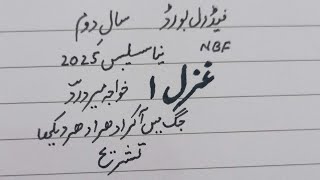 فیڈرل بورڈ سال دوم
NBF نیا سلیبس 2025
غزل ۱ خواجہ میر درد
جگ میں آکر ادھر ادھر دیکھا
تشریح